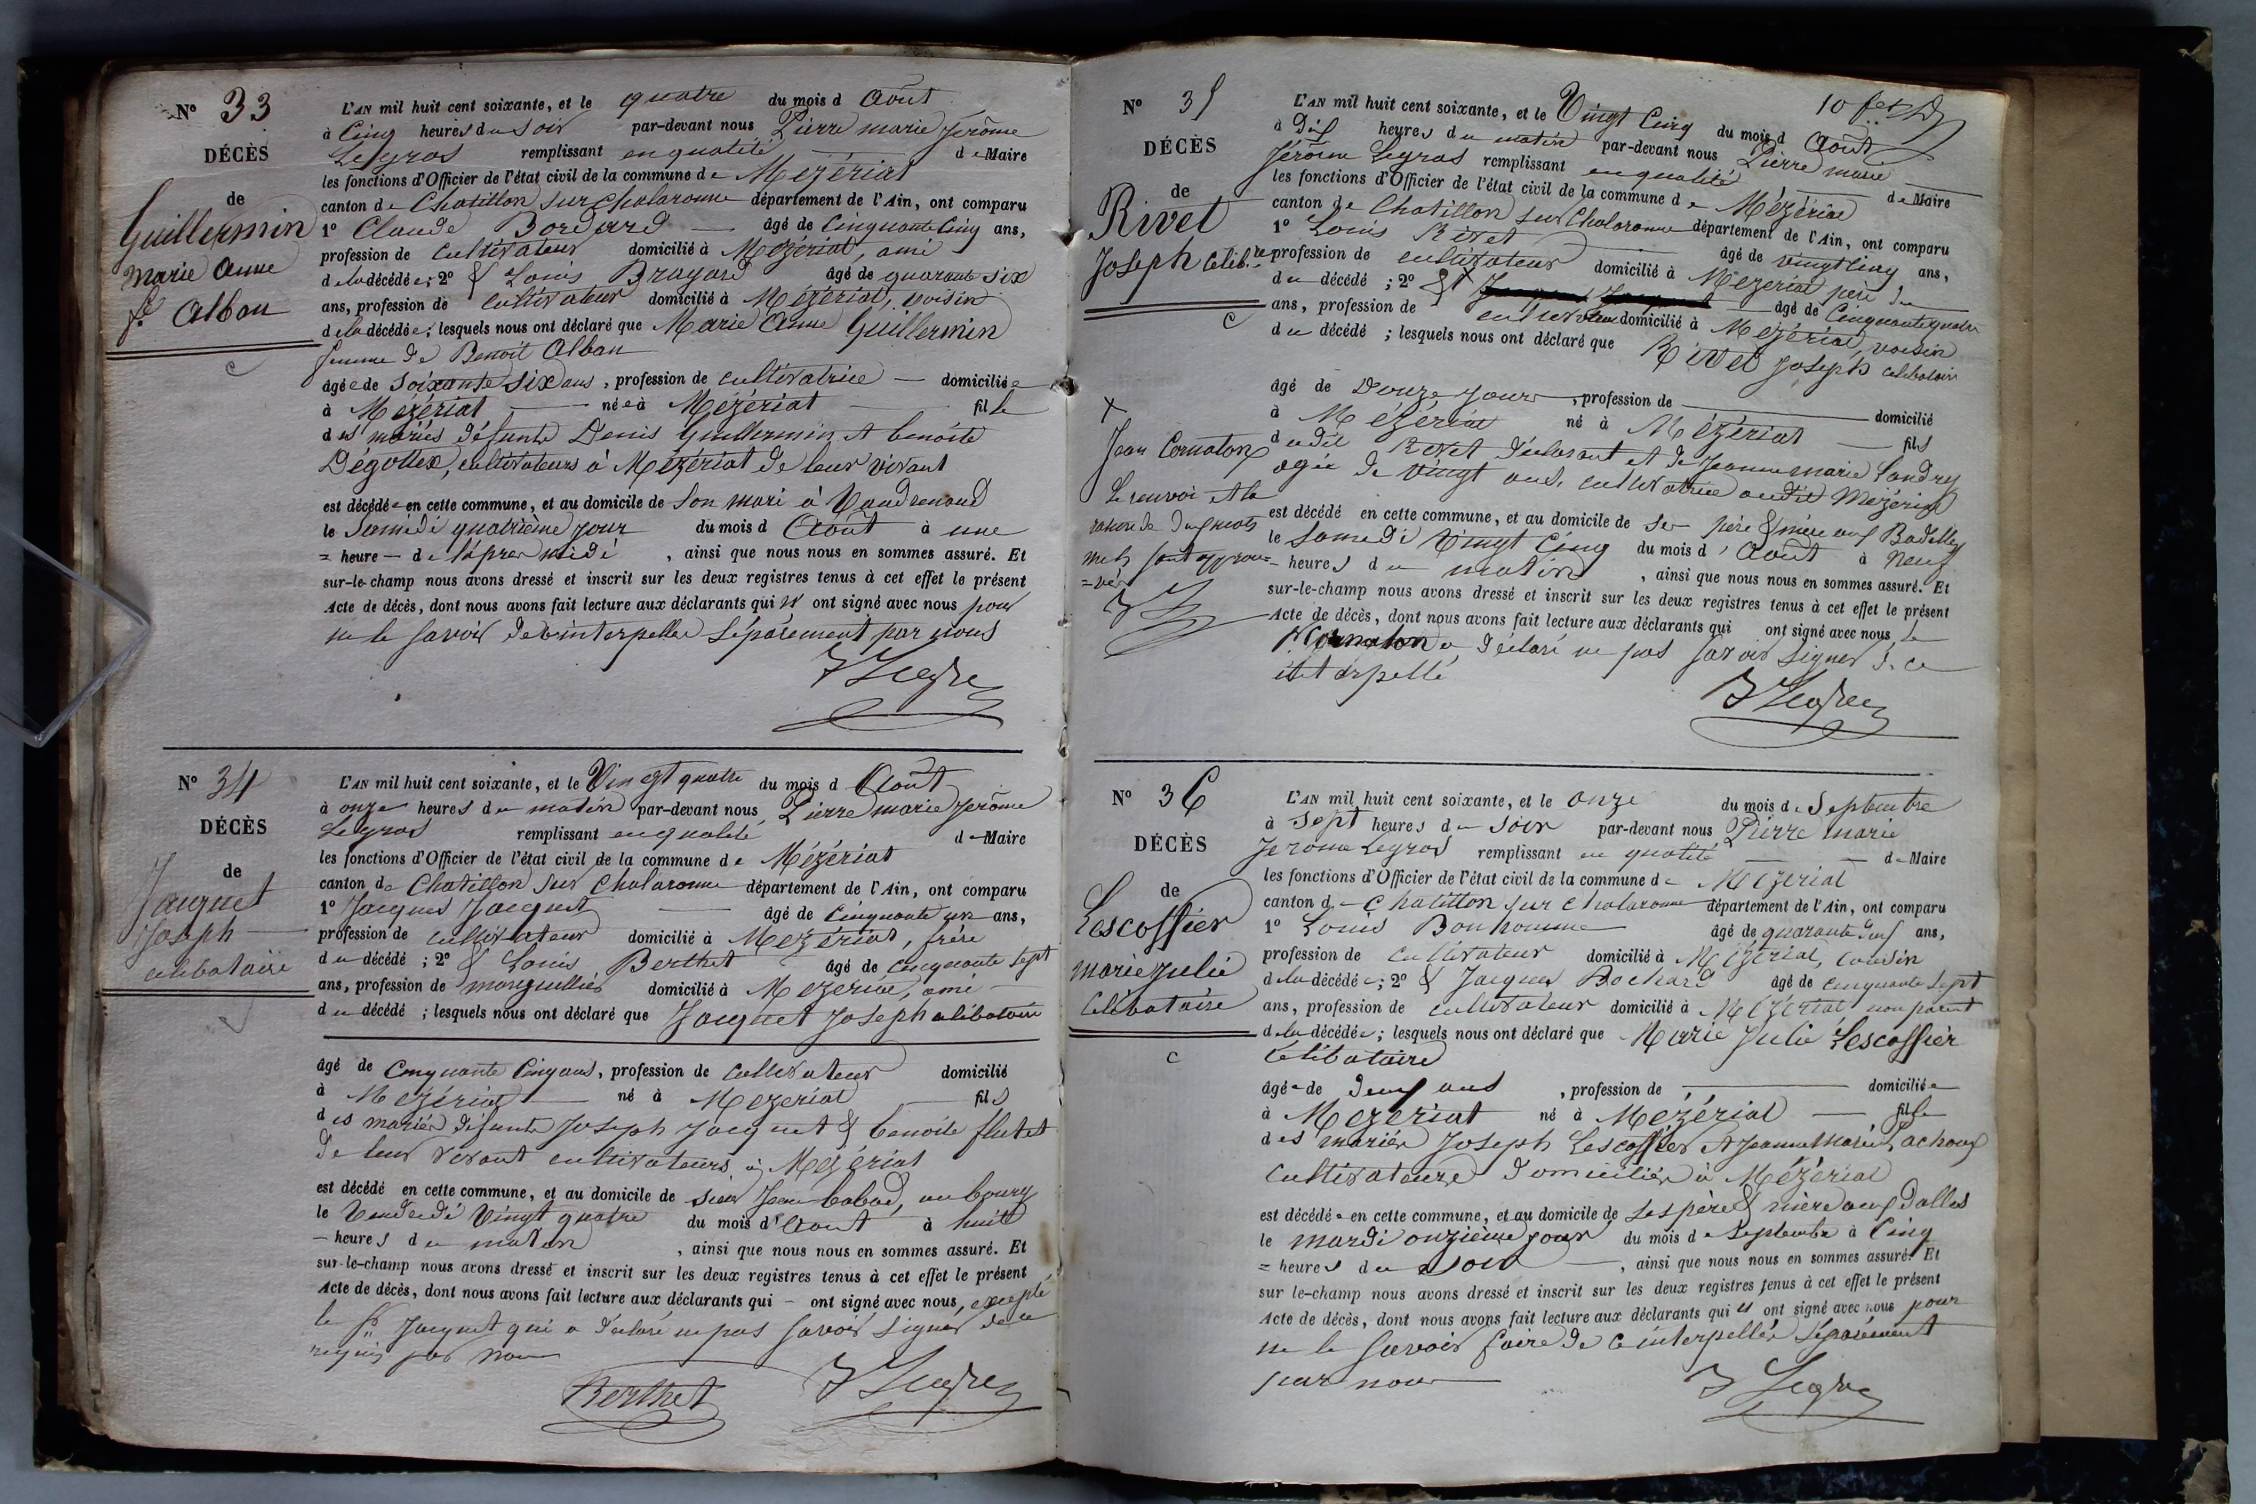 N° 33
DÉCÈS
de
Guillermin
Marie Anne
fe Alban
c
L'AN mil huit cent soixante, et le quatre du mois d Août
à Cinq heures du soir par-devant nous Pierre marie Jerôme
Legros remplissant en qualité de Maire
les fonctions d'Officier de l'état civil de la commune de Mézériat
canton de Chatillon sur Chalaronne département de l'Ain, ont comparu
1° Claude Bordard âgé de Cinquante Cinq ans,
profession de Cultivateur domicilié à Mézériat, ami
de la décédée; 2° & Louis Brayard âgé de quarante six
ans, profession de Cultivateur domicilié à Mézériat, voisin
de la décédée; lesquels nous ont déclaré que Marie Anne Guillermin
femme de Benoit Alban
âgée de Soixante Six ans, profession de cultivatrice domiciliée
à Mézériat née à Mézériat fille
des mariés défunts Denis Guillermin et benoite
Dégottex, cultivateurs à Mézériat de leur vivant
est décédée en cette commune, et au domicile de son mari à Vaudrenaud
le Samedi quatrième jour du mois d Août à une
= heure de l'après midi, ainsi que nous nous en sommes assuré. Et
sur-le-champ nous avons dressé et inscrit sur les deux registres tenus à cet effet le présent
Acte de décès, dont nous avons fait lecture aux déclarants qui n' ont signé avec nous pour
ne le savoir de ce interpellés séparément par nous
J Legros
N° 34
DÉCÈS
de
Jacquet
Joseph
celibataire
L'AN mil huit cent soixante, et le Vingt quatre du mois d Août
à onze heures du matin par-devant nous Pierre marie Jerôme
Legros remplissant en qualité de Maire
les fonctions d'Officier de l'état civil de la commune de Mézériat
canton de Chatillon sur Chalaronne département de l'Ain, ont comparu
1° Jacques Jacquet âgé de Cinquante un ans,
profession de cultivateur domicilié à Mézériat, frère
du décédé; 2° & Louis Berthet âgé de cinquante sept
ans, profession de marguillier domicilié à Mézériat, ami
du décédé; lesquels nous ont déclaré que Jacquet Joseph celibataire
âgé de Cinquante Cinq ans, profession de cultivateur domicilié
à Mézériat né à Mezeriat fils
des mariés défunts Joseph Jacquet & benoite flutet
de leur vivant cultivateurs à Mézériat
est décédé en cette commune, et au domicile de sieur Jean babad, au bourg
le Vendredi Vingt quatre du mois d'Août à huit
heures du matin, ainsi que nous nous en sommes assuré. Et
sur-le-champ nous avons dressé et inscrit sur les deux registres tenus à cet effet le présent
Acte de décès, dont nous avons fait lecture aux déclarants qui ont signé avec nous, excepté
le sr Jacquet qui a déclaré ne pas savoir signer de ce
requis par nous
Berthet J Legros
N° 35
DÉCÈS
de
Rivet
Joseph Célib.re
c
X
Jean Cornaton
Le renvoi et la
rature de deux mots
nuls sont approu=
=vés
L'AN mil huit cent soixante, et le Vingt Cinq du mois d Août
à Dix heures du matin par-devant nous Pierre marie
Jérôme Legros remplissant en qualité de Maire
les fonctions d'Officier de l'état civil de la commune de Mézériat
canton de Chatillon sur Chalaronne département de l'Ain, ont comparu
1° Louis Rivet âgé de vingt cinq ans,
profession de cultivateur domicilié à Mézériat père du
du décédé; 2° & X âgé de Cinquante quatre
ans, profession de cultivateur domicilié à Mézériat, voisin
du décédé; lesquels nous ont déclaré que Rivet Joseph célibataire
âgé de Douze jours, profession de domicilié
à Mézériat né à Mézériat fils
dudit Rivet déclarant et de Jeanne marie Landry
agée de Vingt ans, cultivatrice audit Mézériat
est décédé en cette commune, et au domicile de ses père & mère aux Badelles
le Samedi Vingt Cinq du mois d'Août à Neuf
heures du matin, ainsi que nous nous en sommes assuré. Et
sur-le-champ nous avons dressé et inscrit sur les deux registres tenus à cet effet le présent
Acte de décès, dont nous avons fait lecture aux déclarants qui ont signé avec nous, le
Cornaton a déclaré ne pas savoir signer de ce
J Legros
N° 36
DÉCÈS
de
Lescoffier
marie julie
Célibataire
c
L'AN mil huit cent soixante, et le onze du mois de Septembre
à sept heures du soir par-devant nous Pierre marie
Jerôme Legros remplissant en qualité de Maire
les fonctions d'Officier de l'état civil de la commune de Mézériat
canton de Chatillon sur Chalaronne département de l'Ain, ont comparu
1° Louis Bonhomme âgé de quarante deux ans,
profession de cultivateur domicilié à Mézériat, cousin
de la décédée; 2° & Jacques Bochard âgé de cinquante sept
ans, profession de cultivateur domicilié à Mézériat non parent
de la décédée; lesquels nous ont déclaré que Marie Julie Lescoffier
Célibataire
âgée de deux ans, profession de domiciliée
à Mézériat né à Mézériat fille
des mariés Joseph Lescoffier et Jeanne Marie Pachoux
cultivateurs domiciliés à Mézériat
est décédée en cette commune, et au domicile de ses père & mère aux Dallus
le mardi onzième jour du mois de Septembre à Cinq
= heures du soir, ainsi que nous nous en sommes assuré. Et
sur le-champ nous avons dressé et inscrit sur les deux registres tenus à cet effet le présent
Acte de décès, dont nous avons fait lecture aux déclarants qui n' ont signé avec nous pour
ne le savoir faire de ce interpellés séparément
par nous
J Legros